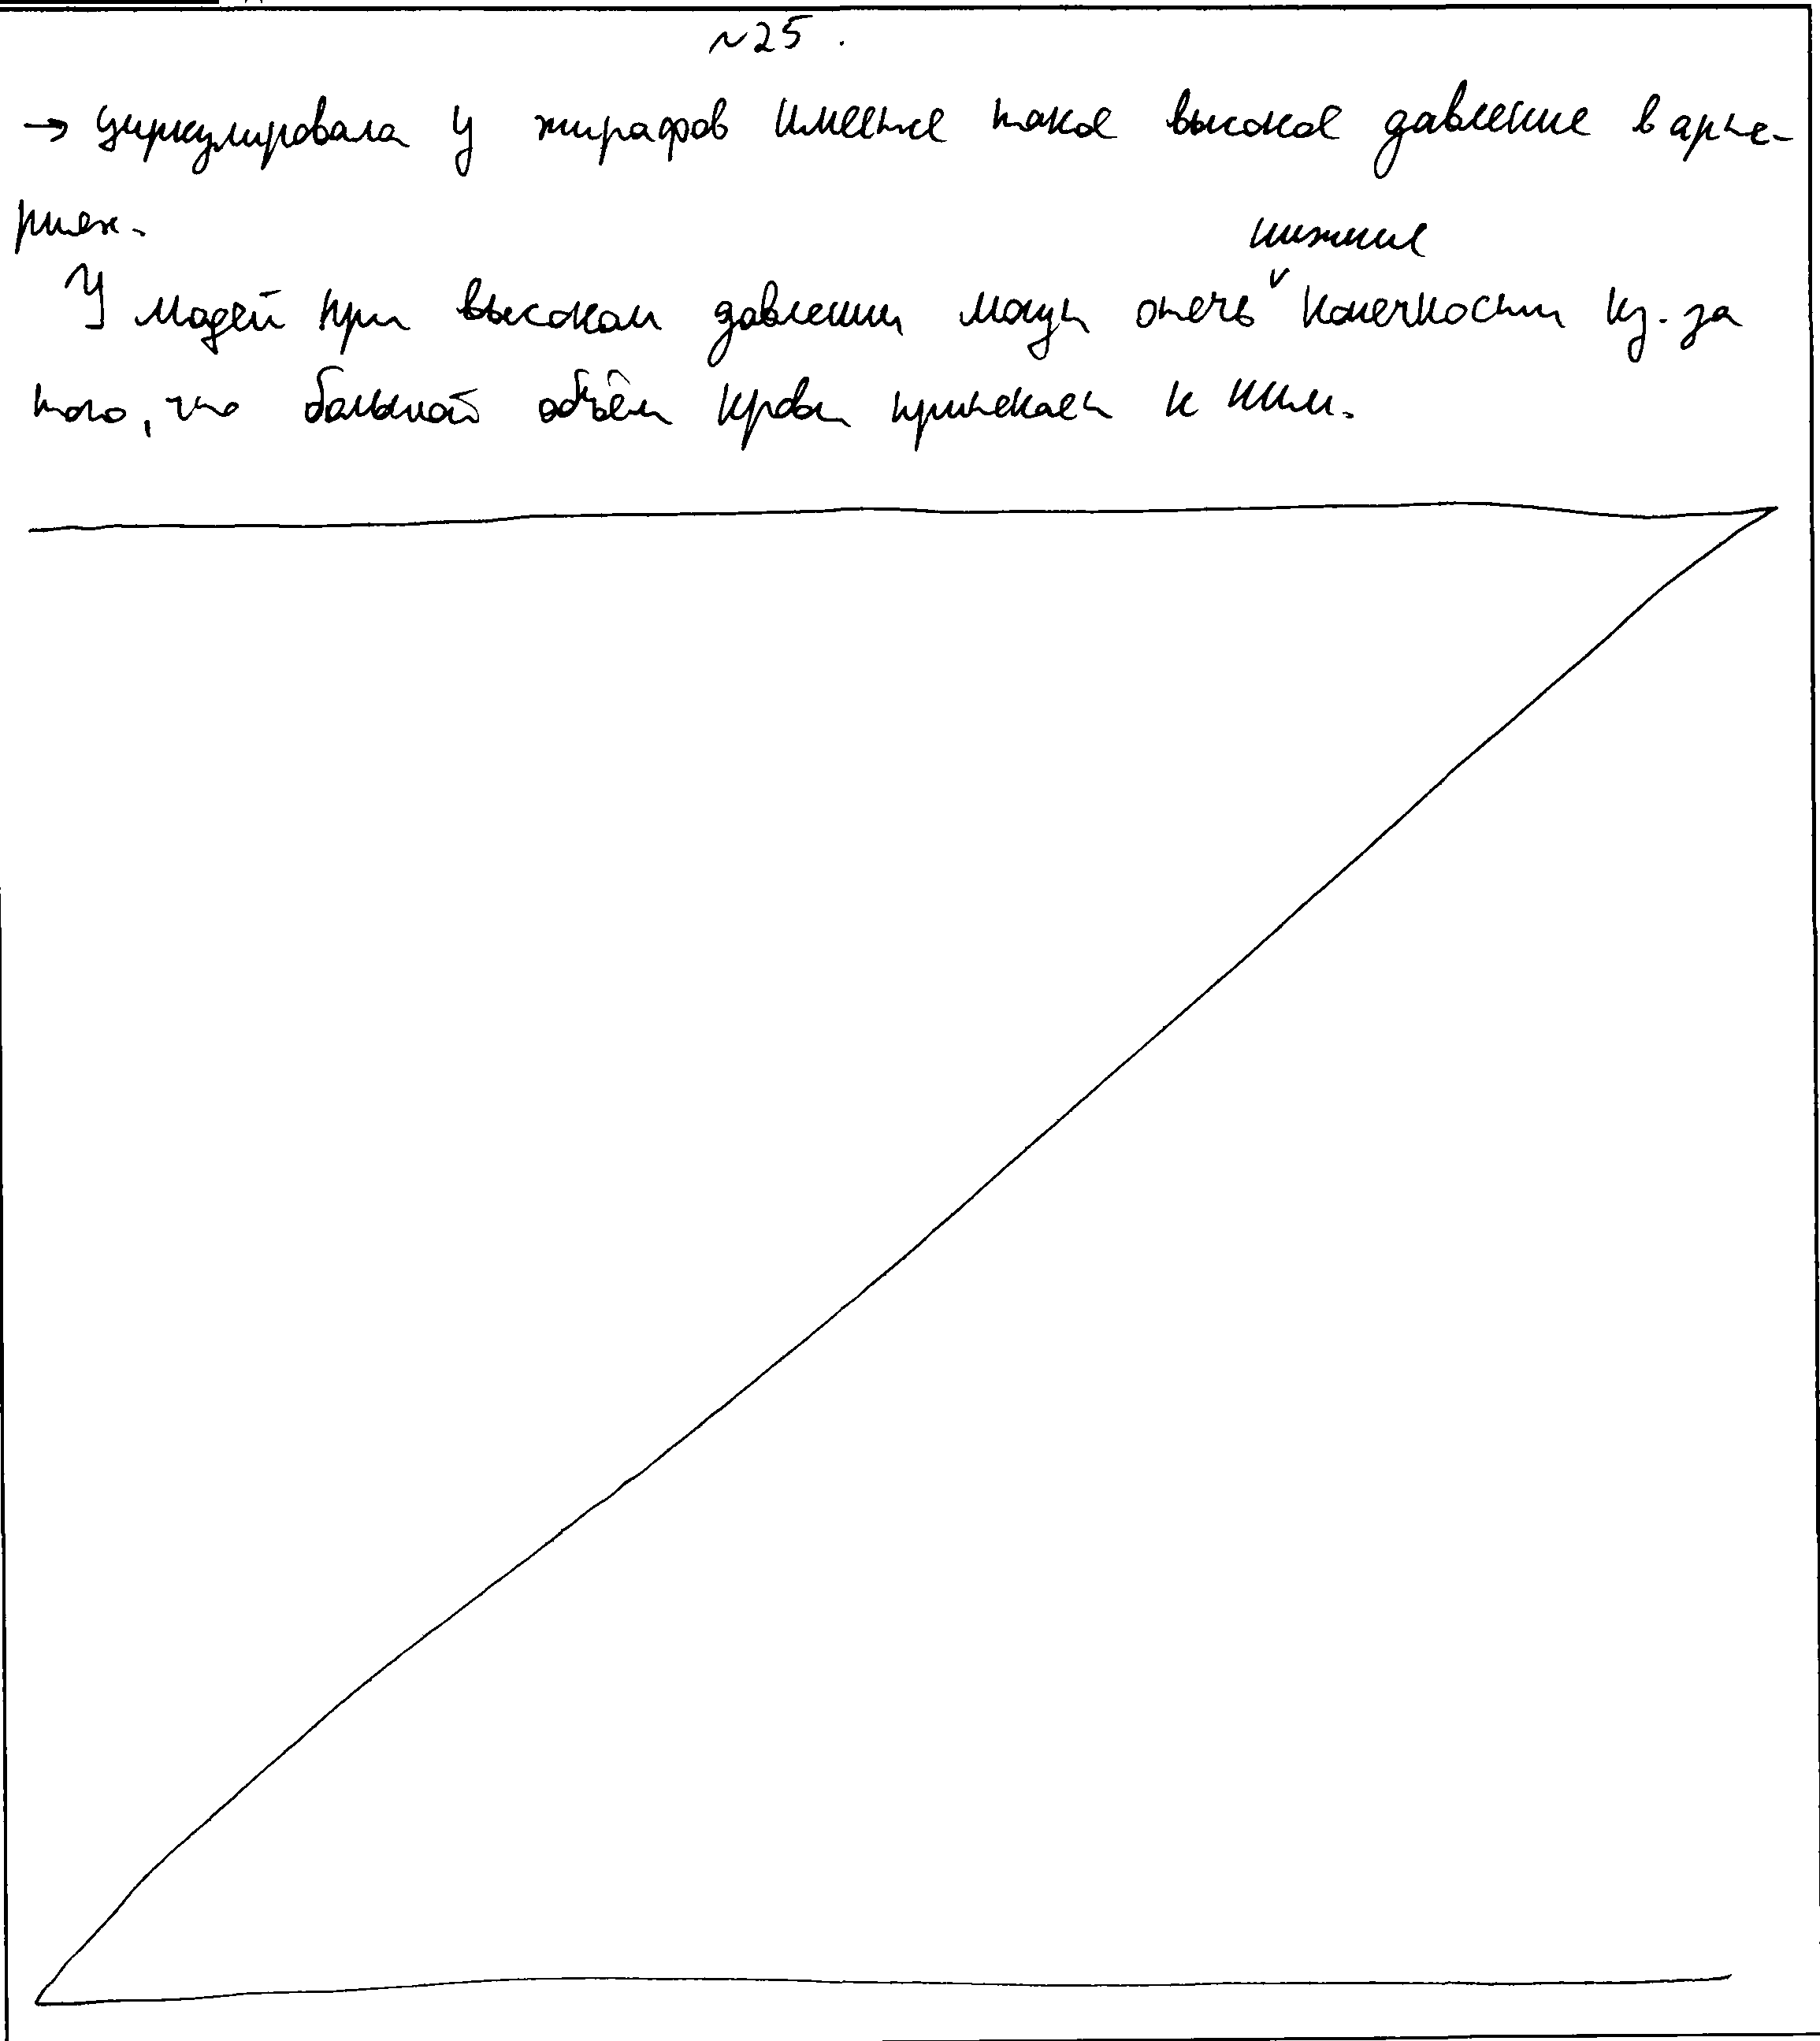 №25.
→ циркулировала у жирафов именно такое высокое давление в арте-
риях.
нижние
У людей при высоком давлении могут отечь конечности из-за
того, что большой объём крови притекает к ним.